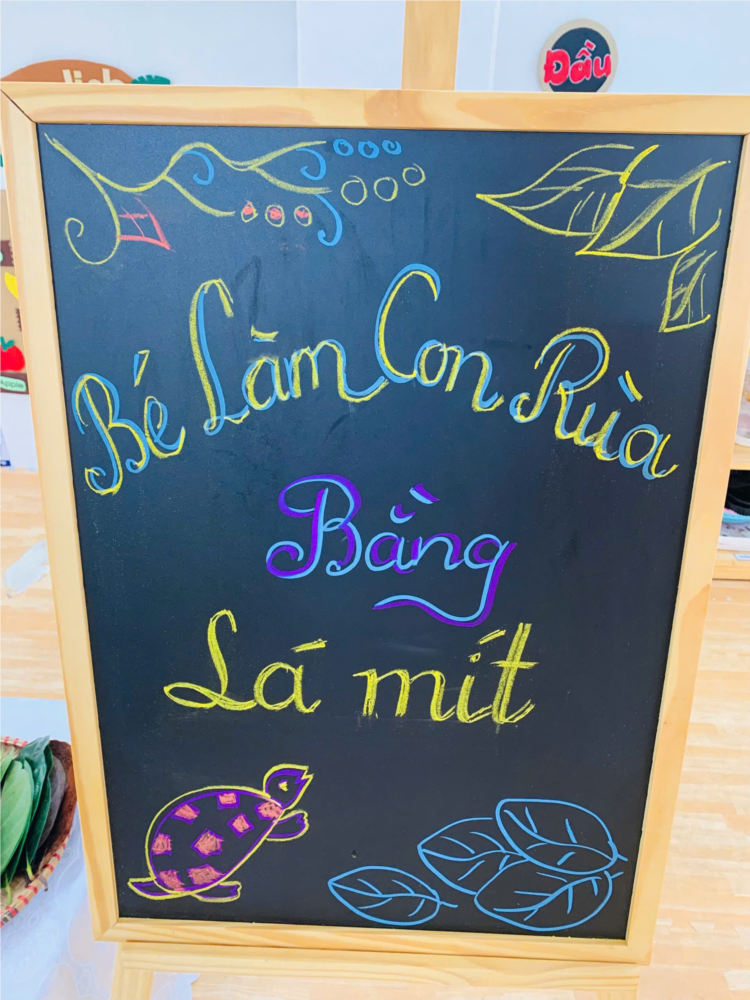 Đầu
Bé Làm Con Rùa
Bằng
Lá mít
Apple